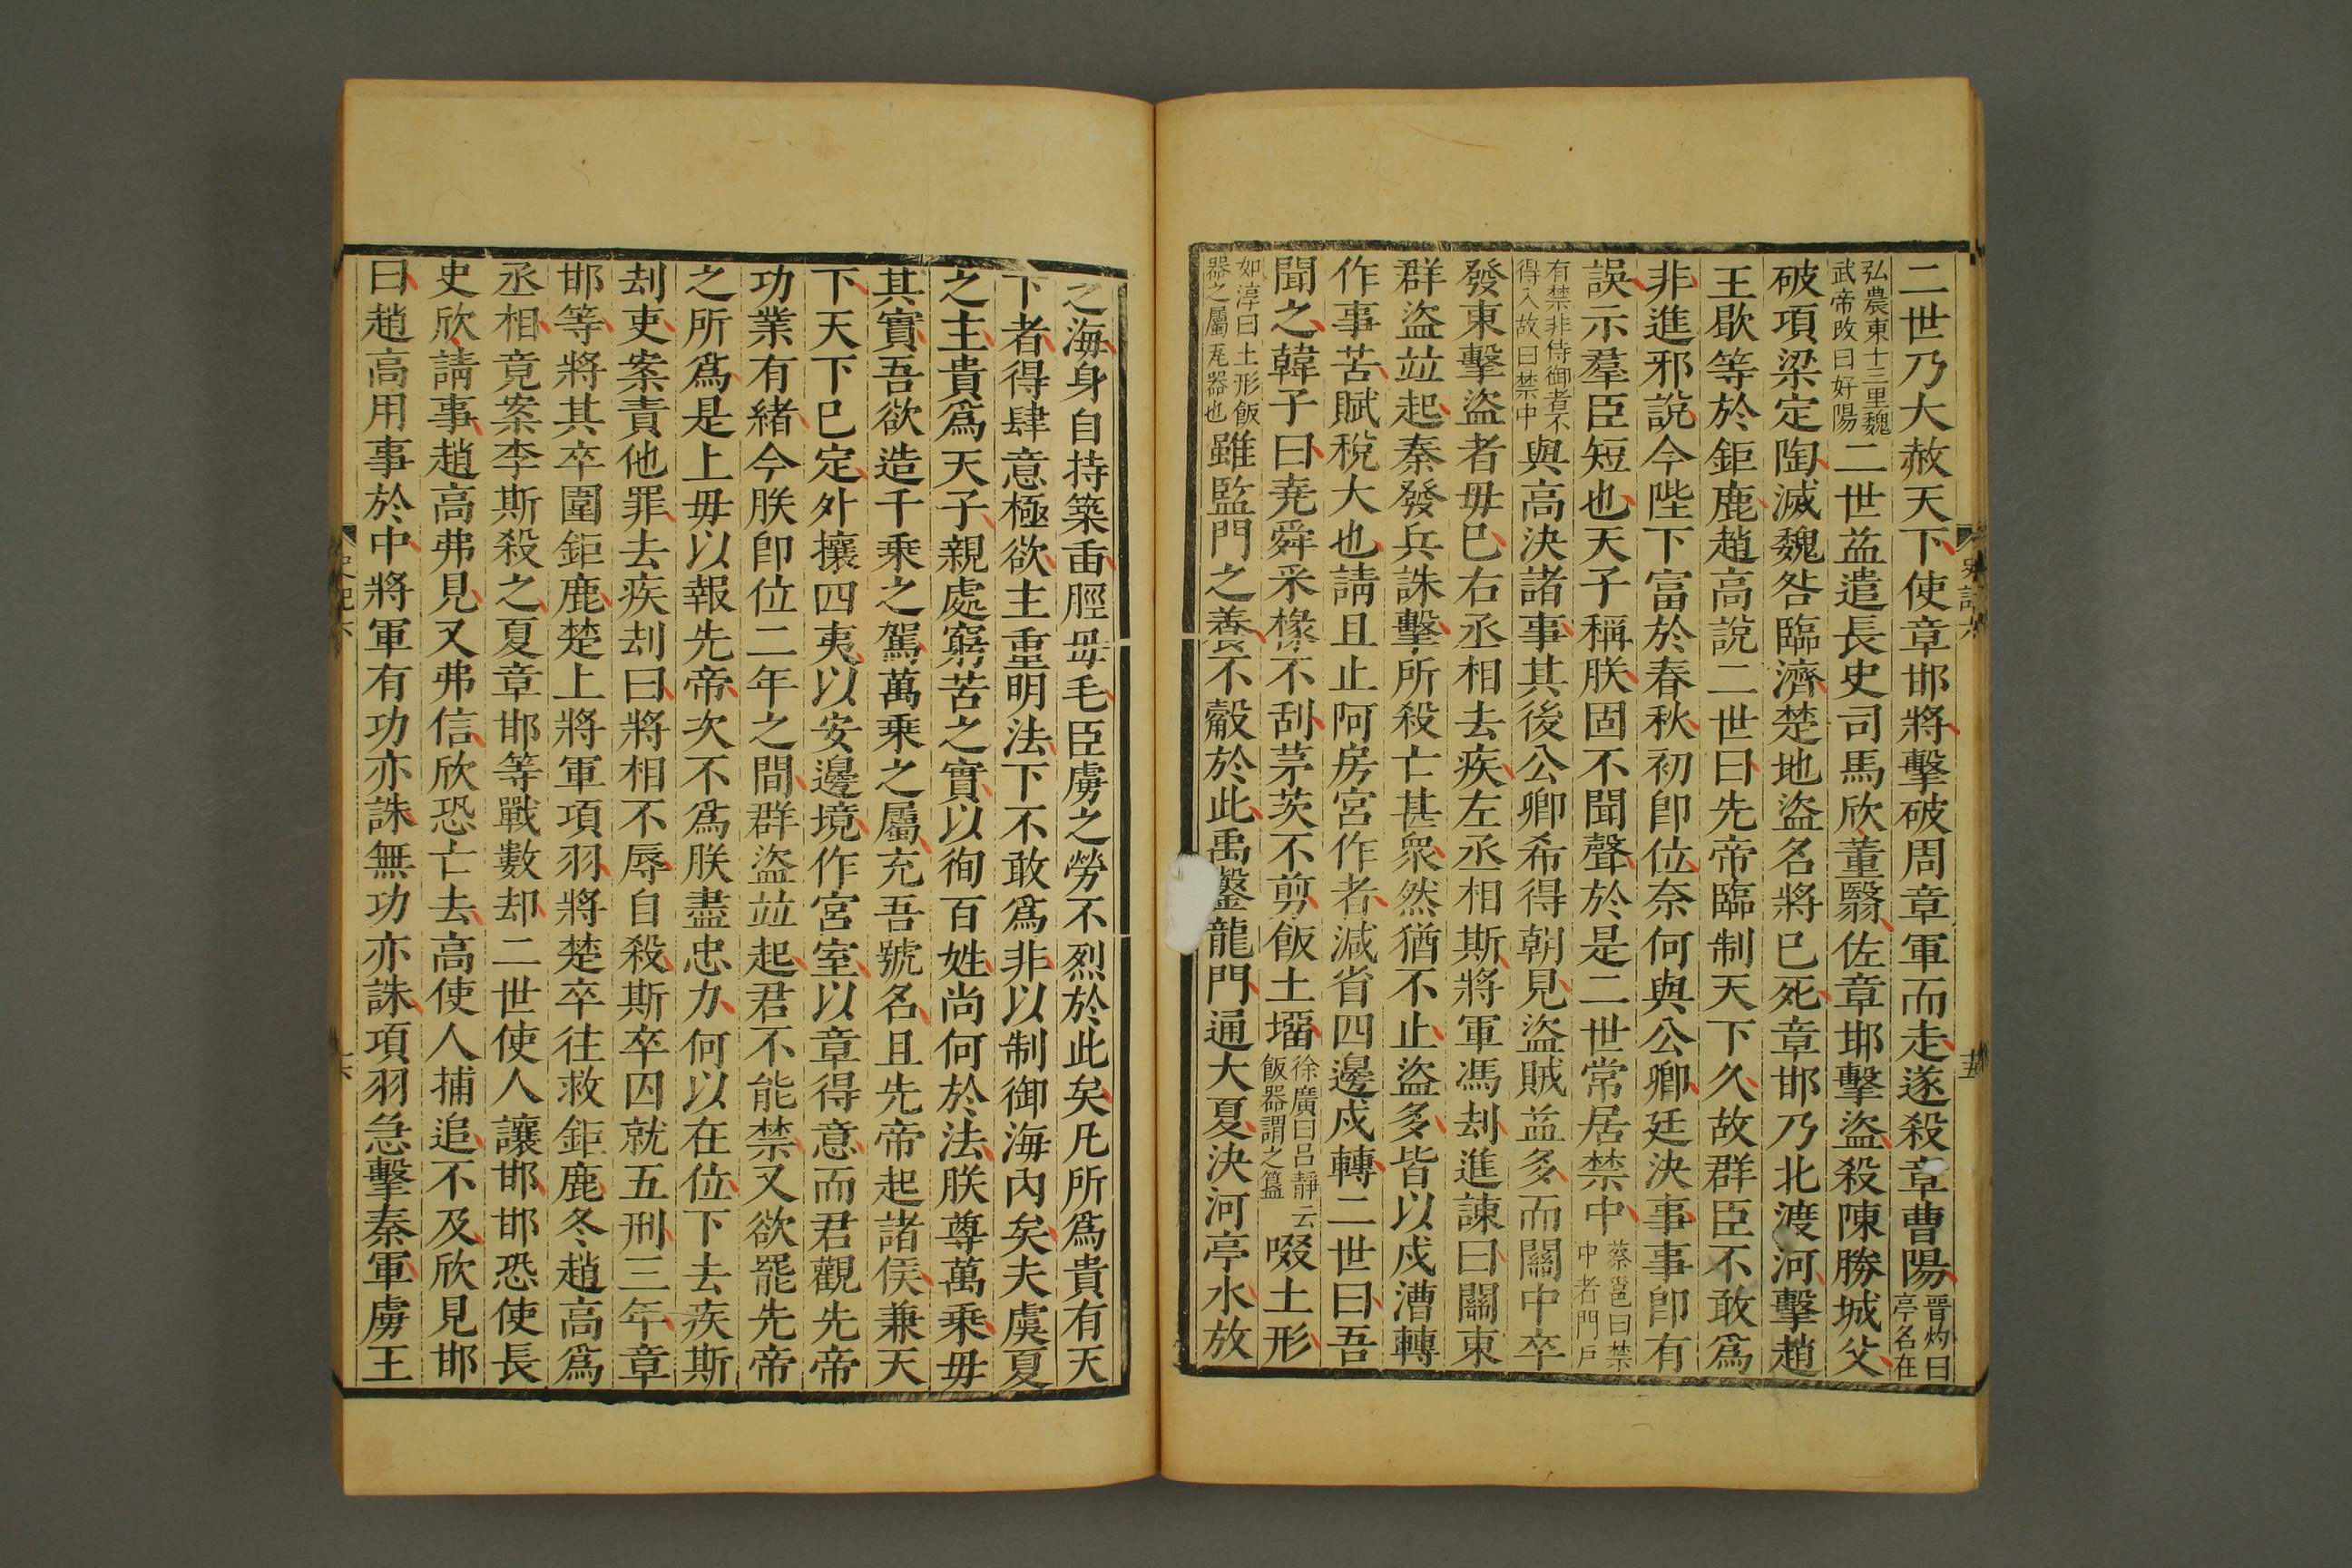 二世乃大赦天下使章邯將擊破周章軍而走遂殺章曹陽晉灼曰亭名在
弘農東十三里魏武帝改曰好陽二世益遣長史司馬欣董翳佐章邯擊盜殺陳勝城父
破項梁定陶滅魏咎臨濟楚地盜名將已死章邯乃北渡河擊趙
王歇等於鉅鹿趙高說二世曰先帝臨制天下久故群臣不敢爲
非進邪說今陛下富於春秋初卽位奈何與公卿廷決事事卽有
誤示羣臣短也天子稱朕固不聞聲於是二世常居禁中蔡邕曰禁中者門戶
有禁非侍御者不得入故曰禁中與高決諸事其後公卿希得朝見盜賊益多而關中卒
發東擊盜者毋已右丞相去疾左丞相斯將軍馮刦進諫曰關東
群盜並起秦發兵誅擊所殺亡甚衆然猶不止盜多皆以戍漕轉
作事苦賦稅大也請且止阿房宮作者減省四邊戍轉二世曰吾
聞之韓子曰堯舜采椽不刮茅茨不剪飯土塯徐廣曰呂靜云飯器謂之簋啜土形
如淳曰土形飯器之屬瓦器也雖監門之養不觳於此禹鑿龍門通大夏決河亭水放
之海身自持築臿脛毋毛臣虜之勞不烈於此矣凡所爲貴有天
下者得肆意極欲主重明法下不敢爲非以制御海內矣夫虞夏
之主貴爲天子親處窮苦之實以徇百姓尚何於法朕尊萬乘毋
其實吾欲造千乘之駕萬乘之屬充吾號名且先帝起諸侯兼天
下天下已定外攘四夷以安邊境作宮室以章得意而君觀先帝
功業有緒今朕卽位二年之間群盜並起君不能禁又欲罷先帝
之所爲是上毋以報先帝次不爲朕盡忠力何以在位下去疾斯
刦吏案責他罪去疾刦曰將相不辱自殺斯卒囚就五刑三年章
邯等將其卒圍鉅鹿楚上將軍項羽將楚卒往救鉅鹿冬趙高爲
丞相竟案李斯殺之夏章邯等戰數却二世使人讓邯邯恐使長
史欣請事趙高弗見又弗信欣恐亡去高使人捕追不及欣見邯
曰趙高用事於中將軍有功亦誅無功亦誅項羽急擊秦軍虜王